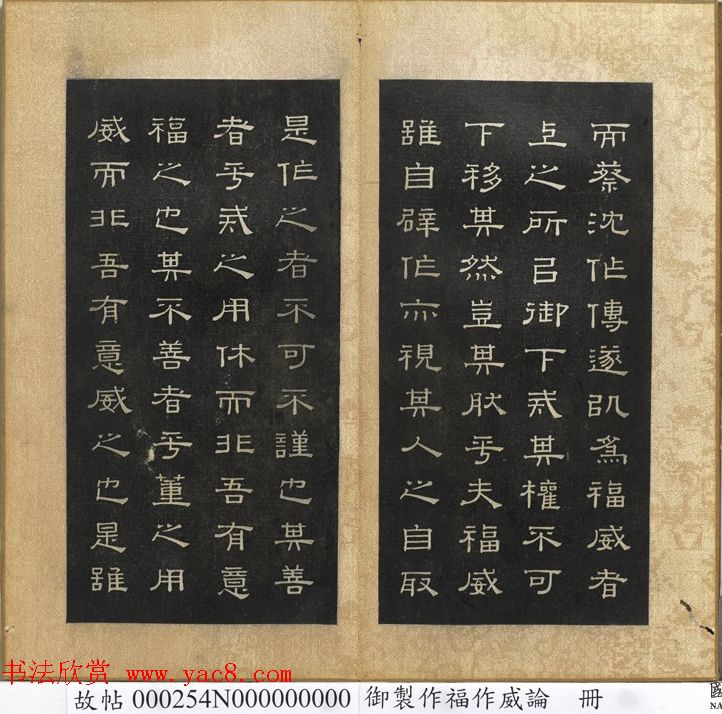 而蔡沈作傳遂㠯為福威者
上之所㠯御下戒其權不可
下移其然豈其肰乎夫福威
雖自辟作亦視其人之自取
是作之者不可不謹也其善
者乎戒之用休而非吾有意
福之也其不善者乎董之用
威而非吾有意威之也是雖
书法欣赏 www.yac8.com
故帖 000254N000000000 御製作福作威論 冊